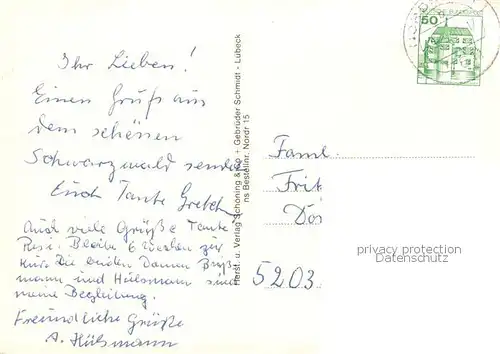 Ihr Lieben!
Einen Gruß aus
dem schönen
Schwarzwald sendet
Euch Tante Gretch
Auch viele Grüße Tante
Resi. Bleibe 6 Wochen zur
Kur. Die beiden Damen
mann und Hülsmann sind
meine Begleitung.
Freundliche Grüße
A. Hülsmann
Herst. u. Verlag Schöning & Co + Gebrüder Schmidt - Lübeck
ns Bestellnr. Nordr 15
50
Faml.
Frit
Dör
5203
privacy protection
Datenschutz